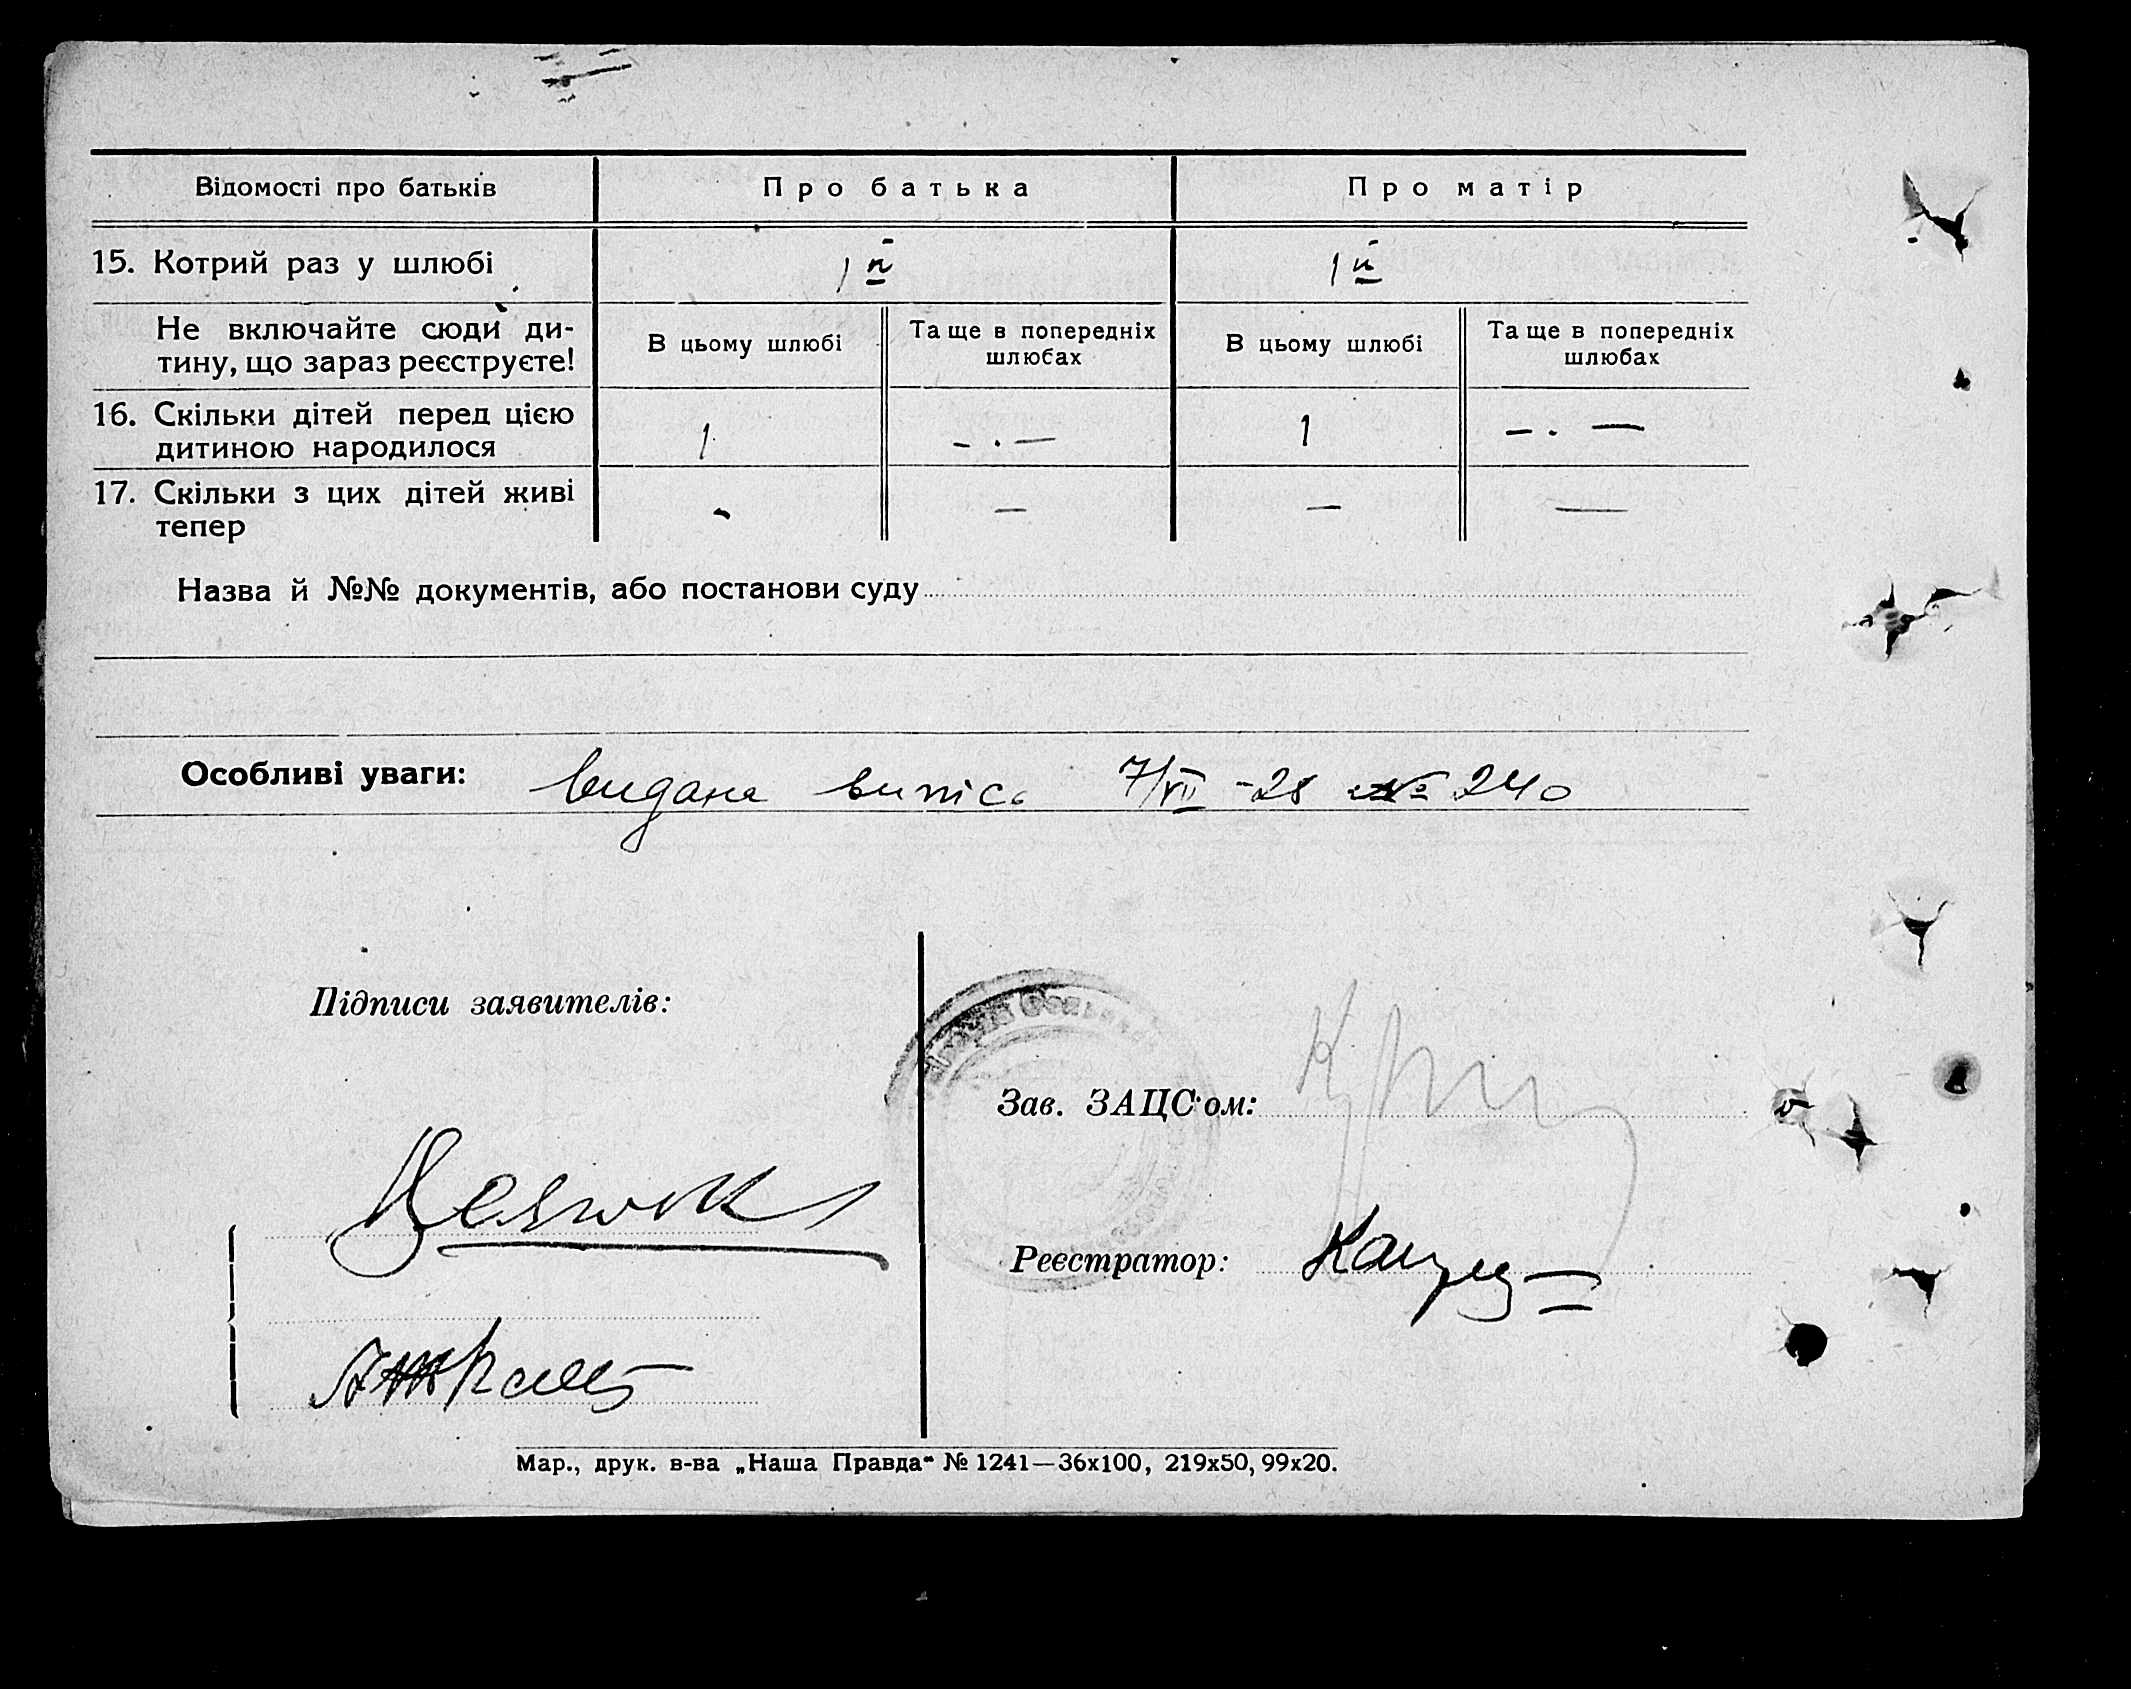 Відомості про батьків
Про батька
Про матір
15. Котрий раз у шлюбі
1й
1й
Не включайте сюди ди-
тину, що зараз реєструєте!
В цьому шлюбі
Та ще в попередніх
шлюбах
В цьому шлюбі
Та ще в попередніх
шлюбах
16. Скільки дітей перед цією
дитиною народилося
1
- . —
1
- . —
17. Скільки з цих дітей живі
тепер
-
—
—
—
Назва й №№ документів, або постанови суду
Особливі уваги: видана випісь 7/VII -28 № 240
Підписи заявителів:
Зав. ЗАЦС'ом:
Реєстратор:
Мар., друк. в-ва „Наша Правда“ № 1241—36х100, 219х50, 99х20.